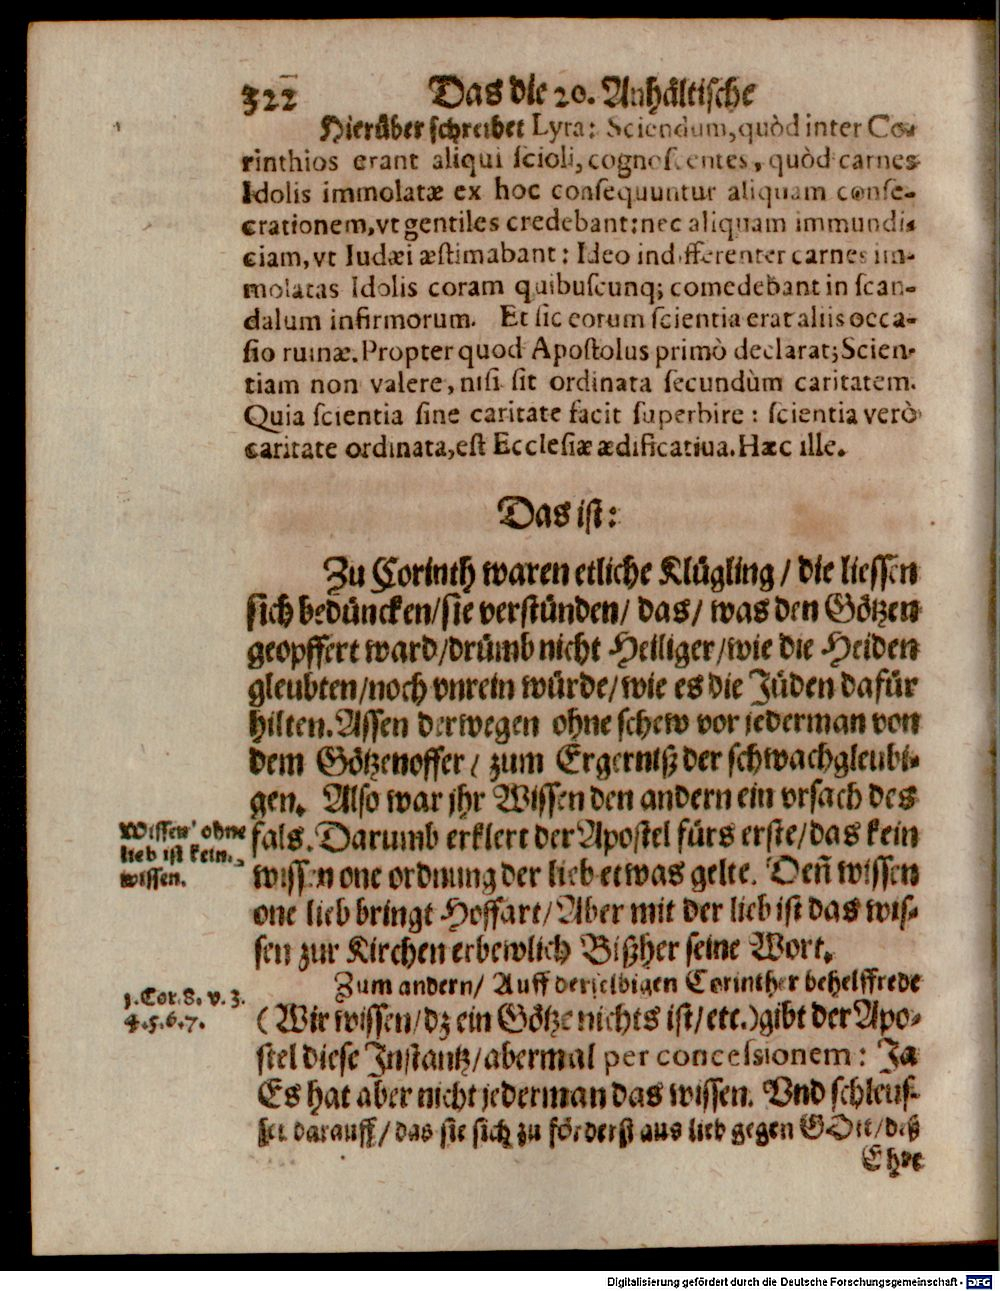 322 Das die 20. Anhältische
Hierüber schreibet Lyra: Sciendum, quòd inter Co-
rinthios erant aliqui ſcioli, cognoſcentes, quòd carnes
Idolis immolatæ ex hoc conſequuntur aliquam conſe-
crationem, vt gentiles credebant: nec aliquam immundi-
ciam, vt Iudæi æſtimabant: Ideo indifferenter carnes im-
molatas Idolis coram quibuſcunq; comedebant in ſcan-
dalum infirmorum. Et ſic eorum ſcientia erat aliis occa-
ſio ruinæ. Propter quod Apoſtolus primò declarat; Scien-
tiam non valere, niſi ſit ordinata ſecundùm caritatem.
Quia ſcientia ſine caritate facit ſuperbire: ſcientia verò
caritate ordinata, eſt Eccleſiæ ædificatiua. Hæc ille.
Das iſt:
Zu Corinth waren etliche Klügling / die lieſſen
ſich bedüncken/ſie verſtünden/ das/ was den Götzen
geopffert ward/drümb nicht Heiliger/wie die Heiden
gleubten/noch vnrein würde/wie es die Jüden dafür
hilten. Aſſen derwegen ohne ſchew vor jederman von
dem Götzenoffer / zum Ergerniß der ſchwachgleubi-
gen. Alſo war jhr Wiſſen den andern ein vrſach des
fals. Darumb erklert der Apoſtel fürs erſte/das kein
wiſſen one ordnung der lieb etwas gelte. Deñ wiſſen
one lieb bringt Hoffart/Aber mit der lieb iſt das wiſ-
ſen zur Kirchen erbewlich Bißher ſeine Wort.
Wiſſen ohne
lieb iſt kein
wiſſen.
Zum andern/ Auff derſelbigen Corinther behelffrede
(Wir wiſſen/dz ein Götze nichts iſt/etc.) gibt der Apo-
ſtel dieſe Jnſtantz/abermal per conceſsionem: Ja
Es hat aber nicht jederman das wiſſen. Vnd ſchleuſ-
ſet darauff/das ſie ſich zu förderſt aus lieb gegen GOtt/deß
1. Cor. 8. v. 3.
4. 5. 6. 7.
Ehre
Digitalisierung gefördert durch die Deutsche Forschungsgemeinschaft - DFG